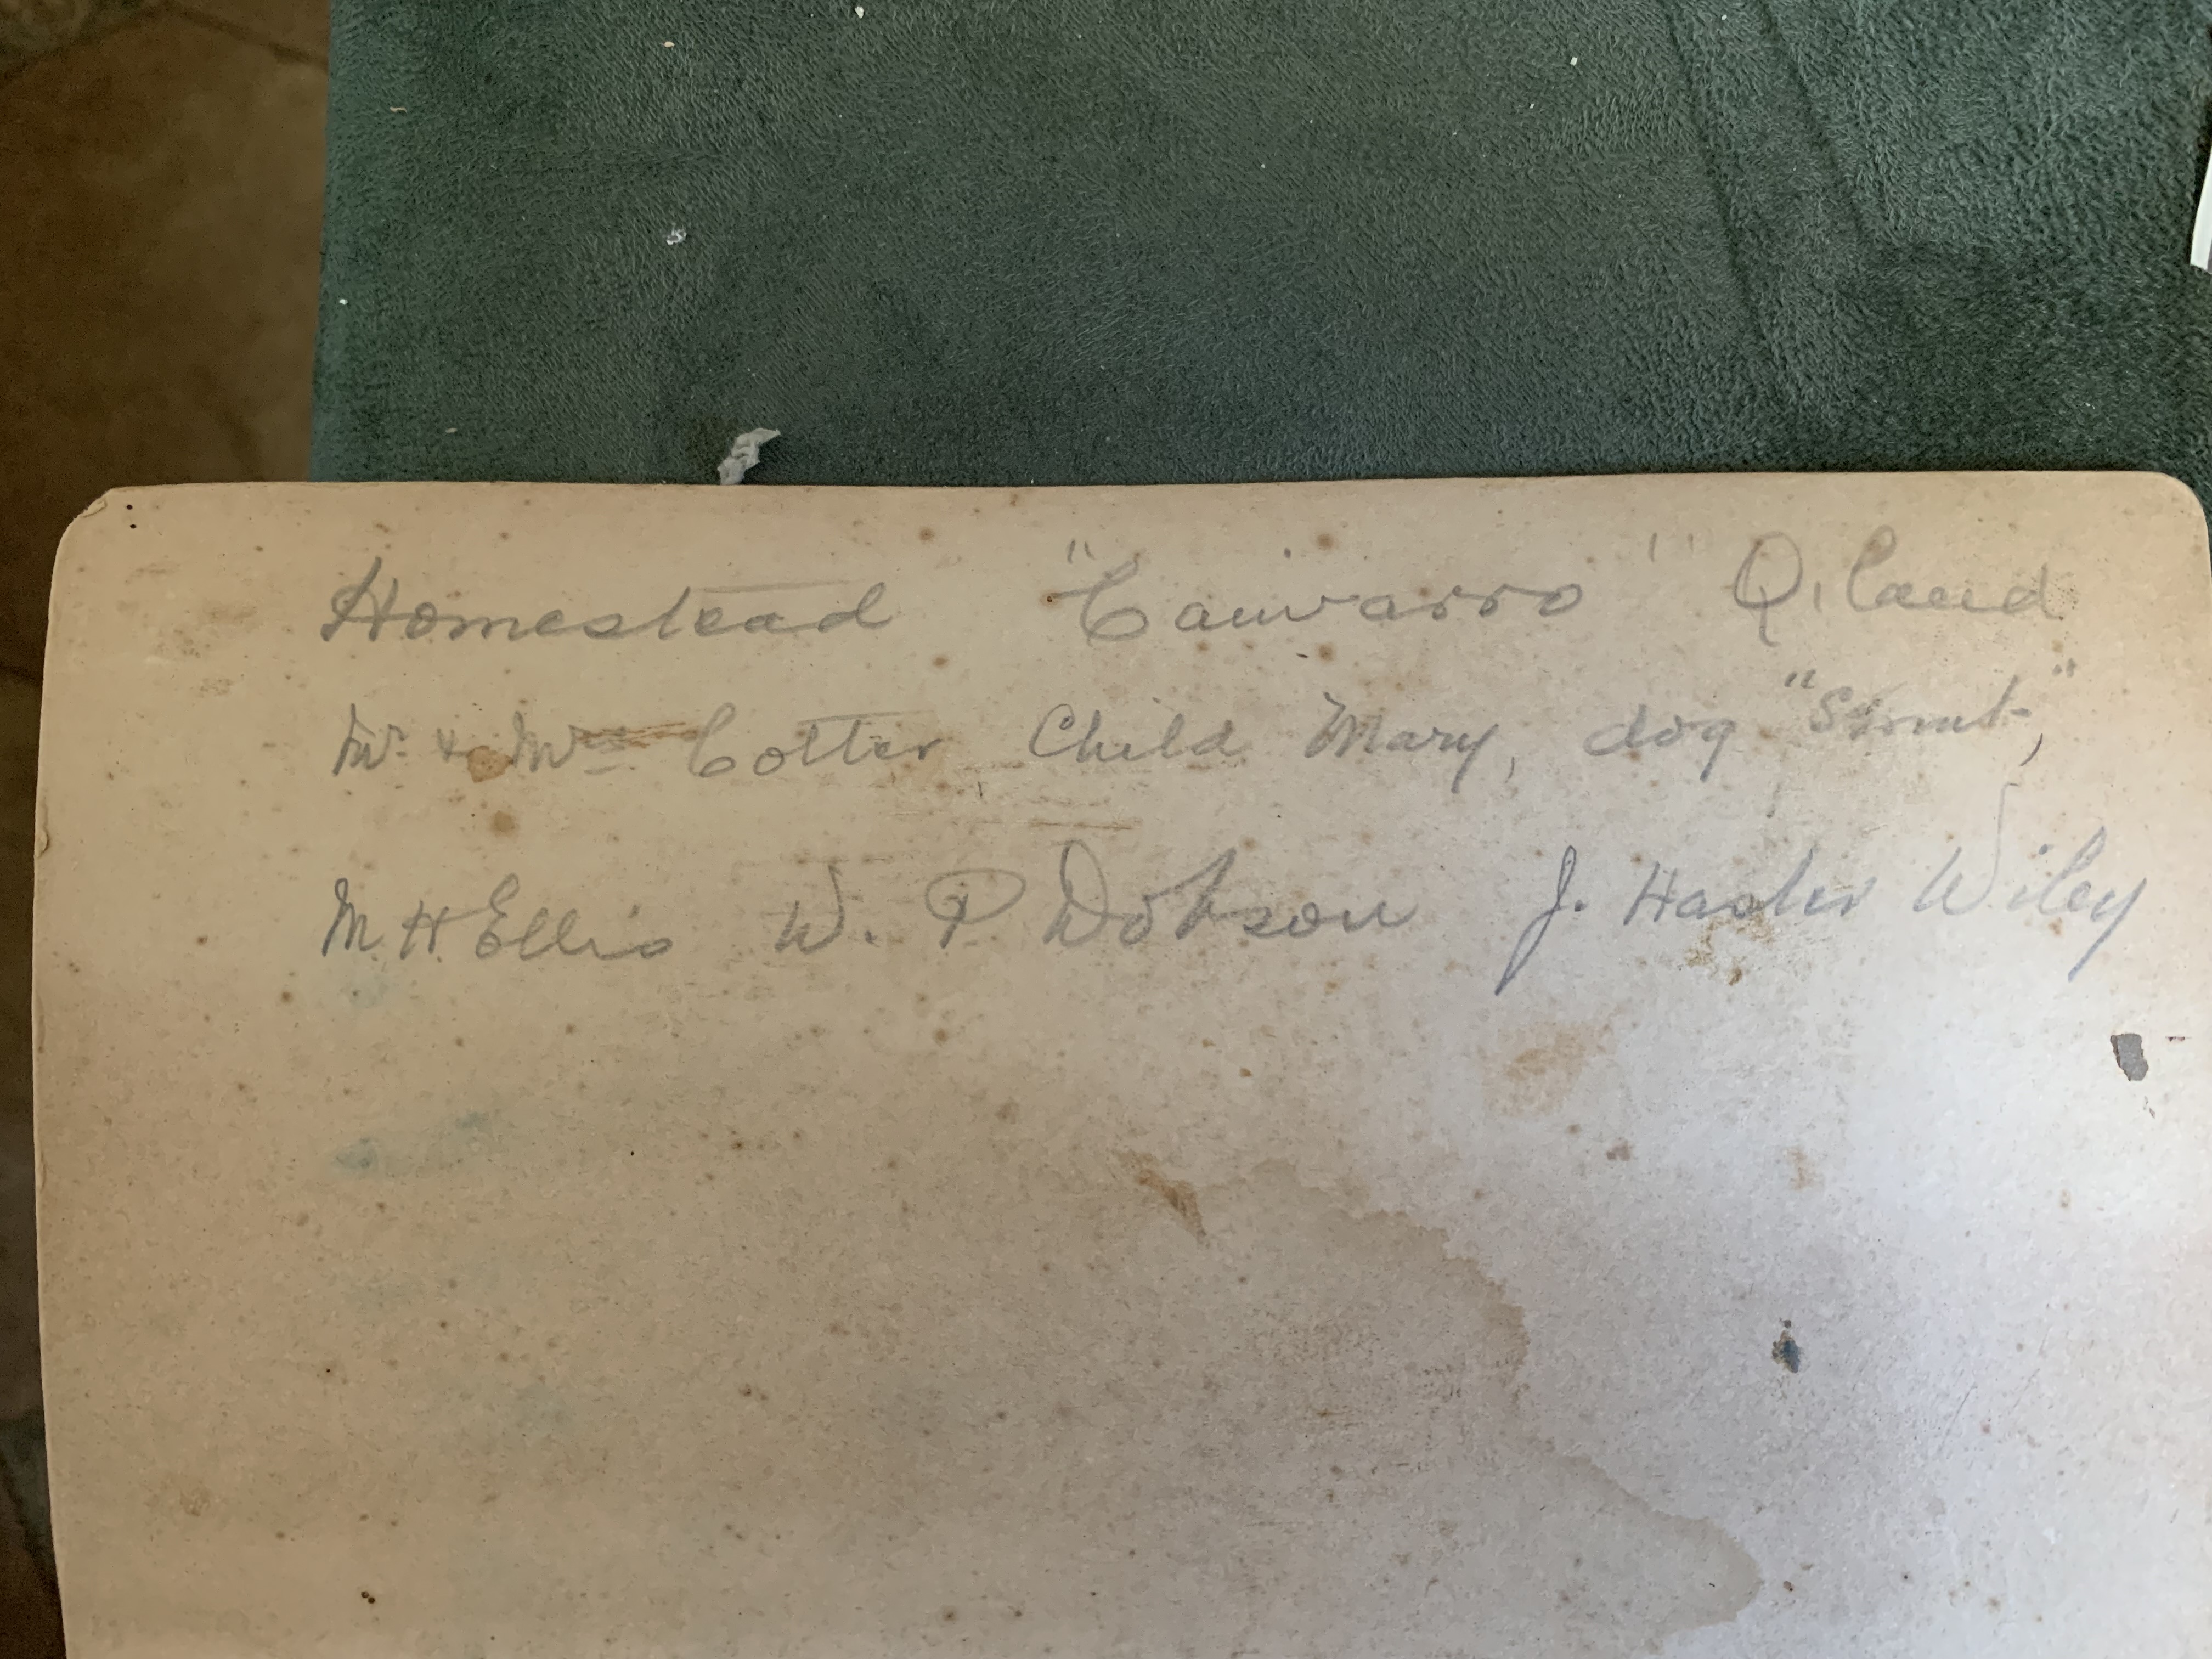 Homestead "Caiwarro" Q.land
Mr & Mrs Cotter Child Mary, dog
M. H. Ellis W. P Dobson J. Hasler Wiley